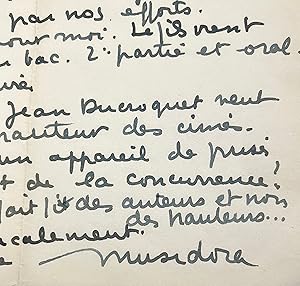 par nos efforts.
moi. Le fils vient
bac. 2e partie et oral.
Jean Ducroquet veut
hauteur des cimes.
un appareil de prise
de la concurrence,
fait des auteurs et non
des hauteurs...
calement.
Musidora